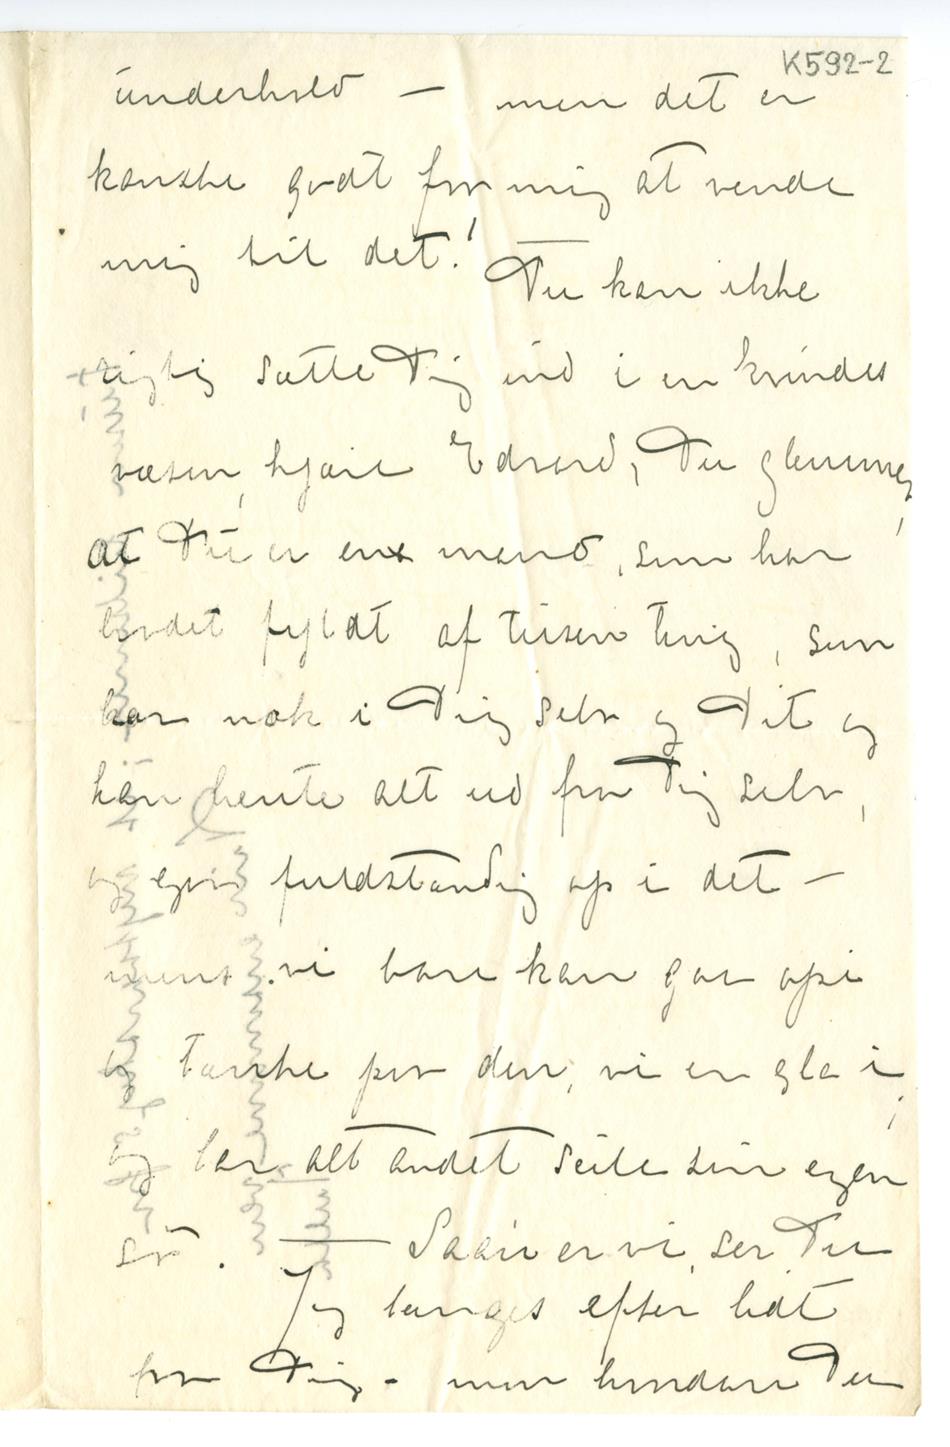 K592-2
underhold — men det er
kanske godt for mig at vende
mig til det! — Du kan ikke
rigtig sætte Dig ind i en kvindes
væsen, kjære Edvard, Du glemmer,
at Du er en mand, som har
livdet fyldt af tusen ting, som
har nok i Dig selv og Dit og
kan hente alt ud fra Dig selv,
og gaa fuldstændig op i det —
mens vi bare kan gaa op i
tanke paa den, vi er gla i,
og lar alt andet seile sin egen
sø. — Saan er vi, ser Du
Jeg længes efter lidt
fra Dig - men hvordan Du